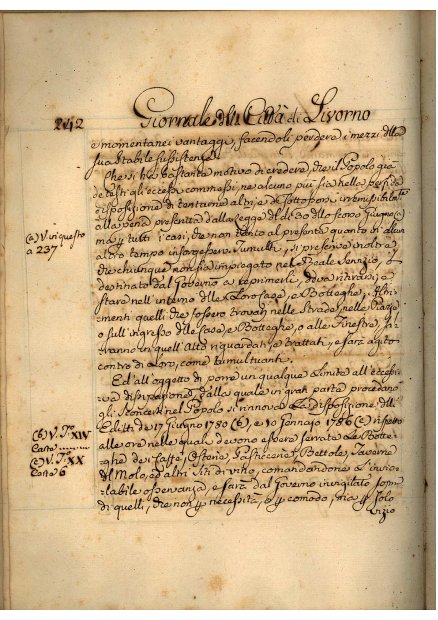 242 Giornale della Città di Livorno
e momentanei vantaggi, facendoli perdere i mezzi della
sua stabile sussistenza.
Che si ha bastante motivo di credere, che il Popolo già
detesti gli eccessi commessi, ne alcuno più sia nella
disposizione di tentarne altri, e di sottoporsi
alla pena prescritta dalla Legge del dì 30 dello scorso Giugno (a)
ma tutti i casi, che non tanto al presente quanto in alcun
altro tempo insorgessero Tumulti, si prescrive inoltre
che chiunque non sia impiegato nel Reale Servizio, o
destinato dal Governo a reprimerli, deva ritirarsi, e
stare nell'interno delle Loro Case, e Botteghe, Altri
menti quelli che fossero trovati nelle Strade, nelle Piazze
o sull'ingresso delle case e Botteghe, o alle Finestre, sa
ranno in quell'atto riguardati, e trattati, e sarà agito
contro di Loro, come tumultuanti.
Ed all'oggetto di porre un qualche Limite all'ecces
siva dissipazione, dalla quale in gran parte procedano
gli sconcerti nel Popolo si rinnova la disposizione delli
Editti de 17 Giugno 1780 (b), e 10 Gennajo 1786 (c) rispetto
alle ore nelle quali devono essere serrate Le Botte
ghe de i Caffè, Osterie, Pasticcerie, Bettole, Taverne
del Molo, ed altri Siti di vino, comandandone L'invio
labile osservanza, e sarà dal Governo invigilato sopra
di quelli, che non necessità, o comodo, ma Solo
vizio
(a) V. in questo
a 237
(b) V. To. XIV
Carte
(c) V. To. XX
Carte 6